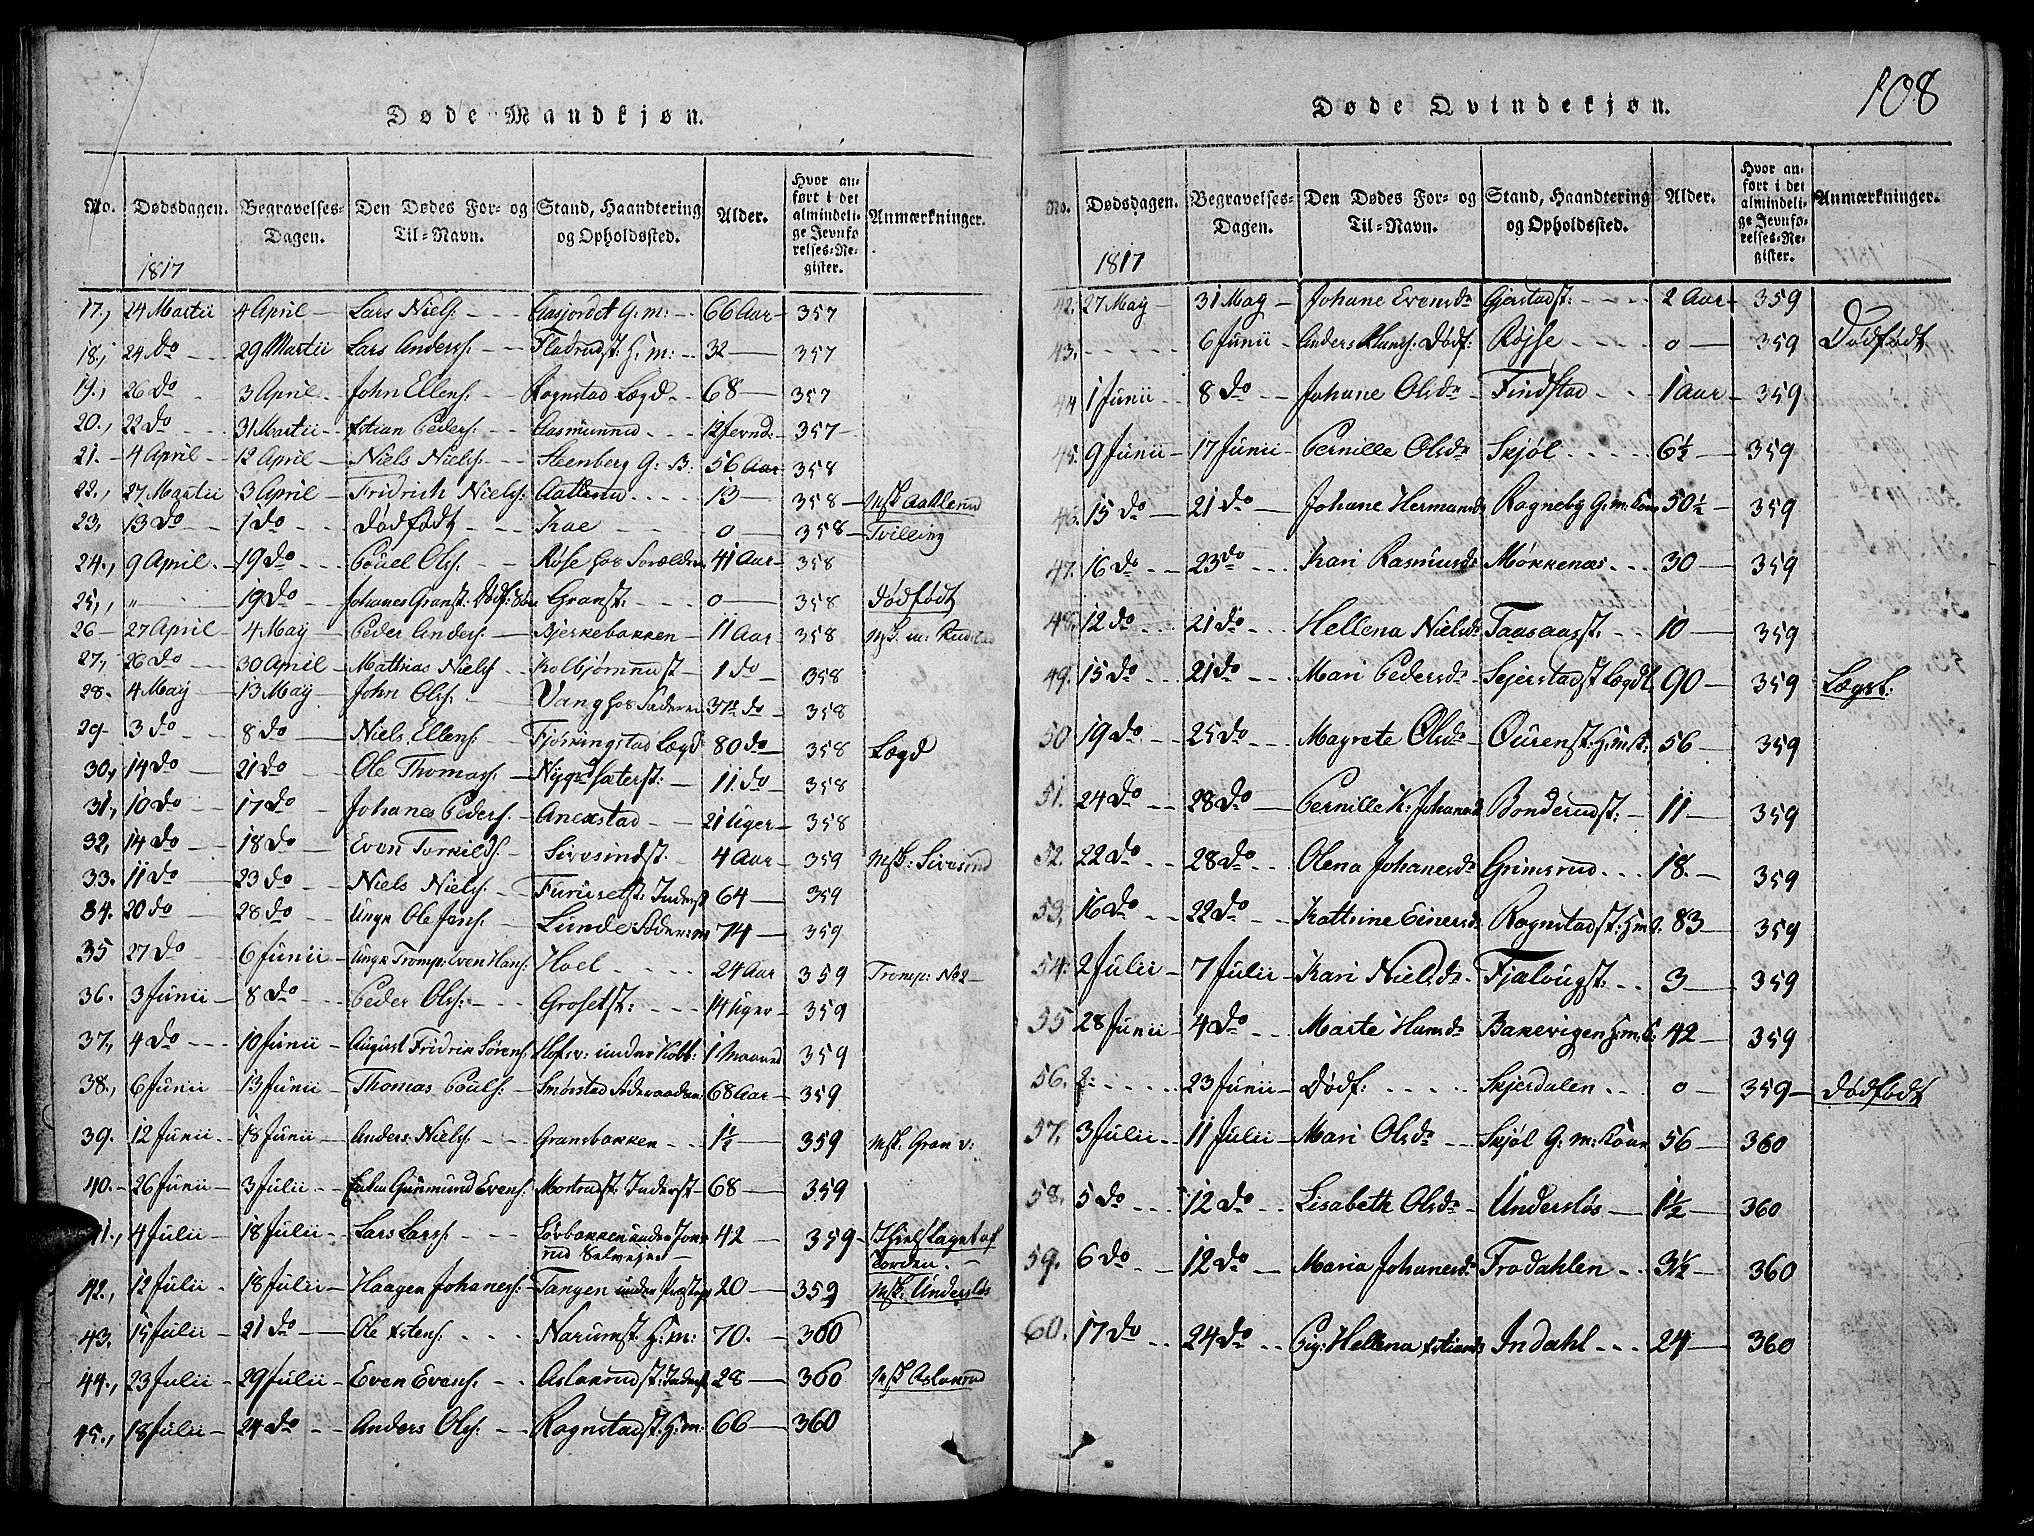 Døde Mandkjøn.
No. Dødsdagen. Begravelses-Dagen. Den Dødes For- og Til-Navn. Stand, Haandtering og Opholdssted. Alder. Hvor anført i det almindelige Jevnførelses-Register. Anmærkninger.
1817
17., 24 Martii 4 April Lars Niels: Aasjordet G: m: 66 Aar 357
18., 24 Do 29 Martii Lars Anders: Fladrudst: H: m: 32 357
19., 26 Do 3 April John Ellens: Rognstad Lægd 68 357
20., 22 Do 31 Martii Xstian Peders: Aasmunrud 12 357
21. 4 April 12 April Niels Niels: Steenberg G: B: 56 Aar 358
22., 27 Martii 3 April Fridrich Niels: 13 358
23, 13 Do 1 Do Dødfødt Kae 0 358 Tvilling
24., 9 April 19 Do Povel Ols: Røse hos 41 Aar 358
25., „ 19 Do Johanes Granst: Dødf: Søn Granst: 0 358 Dødfødt
26 27 April 4 May Peder Anders: Bjerkebakken 11 Aar 358
27, 26 Do 30 April Mathias Niels: Kolbjørnrudst 1 Do 358
28. 4 May 13 May John Ols: Vang hos 358
29 3 Do 8 Do Niels Ellens: Lægd 80 Do 358 Lægd
30., 14 Do 21 Do Ole Thomas: 11 Do 358
31., 10 Do 17 Do Johanes Peders: Anexstad 21 Uger 358
32, 14 Do 18 Do Even Torkilds: Sivesindst: 4 Aar 359
33. 11 Do 23 Do Niels Niels: Furusetst: Inderst 64 359
34. 20 Do 28 Do Ungk Ole Lunde 74 359
35 27 Do 6 Junii Ungk Tromp: Even Hans: Hoel 24 Aar 359
36. 3 Junii 8 Do Peder Ols: Grosetst: 14 Uger 359
37., 4 Do 10 Junii August Fridrik Sørens: under 1 Maaned 359
38., 6 Junii 13 Junii Thomas Pouls: Smørstad 68 Aar 359
39. 12 Junii 18 Junii Anders Niels: Gransbakken 1½ 359
40. 26 Junii 3 Julii Gunmund Evens: Mostrudst: Inderst 68 359
41., 4 Julii 18 Julii Lars Lars: under 42 359 Ihjelslaget af
rud Selvejer Torden.
42., 12 Julii 18 Julii Haagen Johanes: Tangen under 20 359 Undersløs
43. 15 Julii 21 Do Ole Xstens: Narumst: H: m: 70. 360
44., 23 Julii 29 Julii Even Evens: Aslakrudst: Inderst 28 360 Aslakrud
45., 18 Julii 24 Do Anders Ols: Rognstadst: H: m: 66 360
108
Døde Qvindekjøn.
No. Dødsdagen. Begravelses-Dagen. Den Dødes For- og Til-Navn. Stand, Haandtering og Opholdssted. Alder. Hvor anført i det almindelige Jevnførelses-Register. Anmærkninger.
1817
42. 27 May 31 May Johane Evensdr Gjerstadst: 2 Aar 359
43. 6 Junii Anders Hans: Dødf: Røjse 0 359 Dødfødt
44 1 Junii 8 Do Johane Olsdr Findstad 1 Aar 359
45. 9 Junii 17 Junii Pernille Olsdr Skjøl 6½ 359
46. 15 Do 21 Do Johane Hermansdr Rogneby G: m: Kone 50½ 359
47. 16 Do 23 Do Kari Rasmusdr Møkkenæs 30 359
48. 12 Do 21 Do Hellena Nielsdr Taasaasst: 10 359
49. 15 Do 21 Do Mari Pedersdr Sejerstadst Lægdl 90 359 Lægsl:
50 19 Do 25 Do Magrete Olsdr Ourenst: H: m: st: 56 359
51. 24 Do 28 Do Pernille K: Johansd Bonderudst: 11 359
52. 22 Do 28 Do Olena Johanesdr Grimsrud 18. 359
53, 16 Do 22 Do Kathrine Einersdr Rognstadst: 83 359
54. 2 Julii 7 Julii Kari Nielsdr Fjalougst: 3 359
55 28 Junii 4 Do Marte Hansdr Bakevigen 42 359
56. 23 Junii Dødf: Skjerdalen 0 359 Dødfødt
57. 3 Julii 11 Julii Mari Olsdr Skjøl G: m: Kone 56 360
58. 5 Do 12 Do Lisabeth Olsdr Undersløs 1½ 360
59. 6 Do 12 Do Maria Johanesdr Frodahlen 3½ 360
60. 17 Do 24 Do Pig: Hellena Xstiansd Indahl 24 360